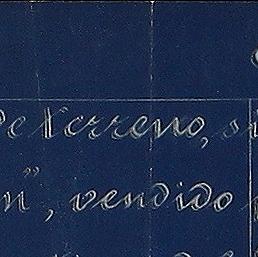 De Terreno, s
n", vendido